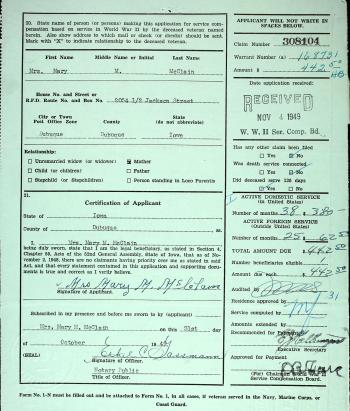 20. State name of person (or persons) making this application for service compensation based on service in World War II by the deceased veteran named herein. Also show address to which mail or check (or checks) should be sent. Mark with "X" to indicate relationship to the deceased veteran.
First Name Middle Name or Initial Last Name
Mrs. Mary M. McClain
Home No. and Street or
R.F.D. Route No. and Box No. 2054 1/2 Jackson Street
City or Town County State
Post Office Zone (do not abbreviate)
Dubuque Dubuque Iowa
Relationship:
Unremarried widow (or widower) Mother
Child (or children) Father
Stepchild (or Stepchildren) Person standing in Loco Parentis
21. Certification of Applicant
State of Iowa
County of Dubuque
I, Mrs. Mary M. McClain
being duly sworn, state that I am the legal beneficiary, as stated in Section 4, Chapter 59, Acts of the 52nd General Assembly, State of Iowa, that as of November 2, 1948, there are no claimants having priority over me as stated in said Act, and that every statement contained in this application and supporting documents is true and correct as I verily believe.
Mrs Mary M. McClain
Signature of Applicant.
Subscribed in my presence and before me sworn to by (applicant)
Mrs. Mary M. McClain on this 31st day
of October
(SEAL)
Signature of Officer.
Notary Public
Title of Officer.
Form No. 1-N must be filled out and attached to Form No. 1, in all cases, if veteran served in the Navy, Marine Corps. or
Coast Guard.
APPLICANT WILL NOT WRITE
IN SPACES BELOW.
Claim Number 308104
Warrant Number (s) 168731
Amount $ 442.50
Date application received:
RECEIVED
NOV 4 1949
W. W. II Ser. Comp. Bd.
Has any other claim been filed
Yes No
Was death service connected
Yes No
Did deceased serve 120 days
Yes No
ACTIVE DOMESTIC SERVICE
(in United States)
Number of months 38 $ 380
ACTIVE FOREIGN SERVICE
(Outside United States)
Number of months 25 $ 62.50
TOTAL AMOUNT DUE 442.50
Number beneficiaries eligible
Amount due each 442.50
Audited by
Residence approved by
Service computed by
Amounts extended by
Recommended for Payment:
Executive Secretary
Approved for Payment.
(For) Chairman World War II
Service Compensation Board.